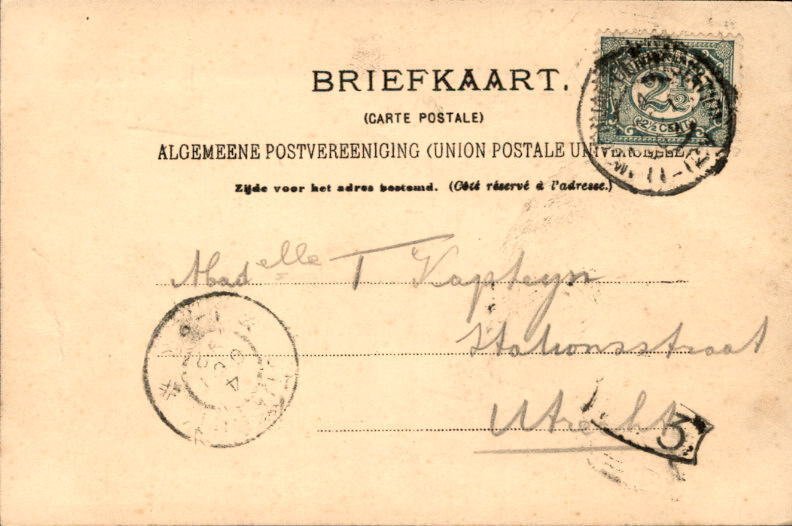 BRIEFKAART.
(CARTE POSTALE)
ALGEMEENE POSTVEREENIGING (UNION POSTALE UNIVERSELLE)
Zijde voor het adres bestemd. (Côté réservé à l'adresse.)
2½
2½ CENT
Madelle T Kapteyn
Stationsstraat
Utrecht
3